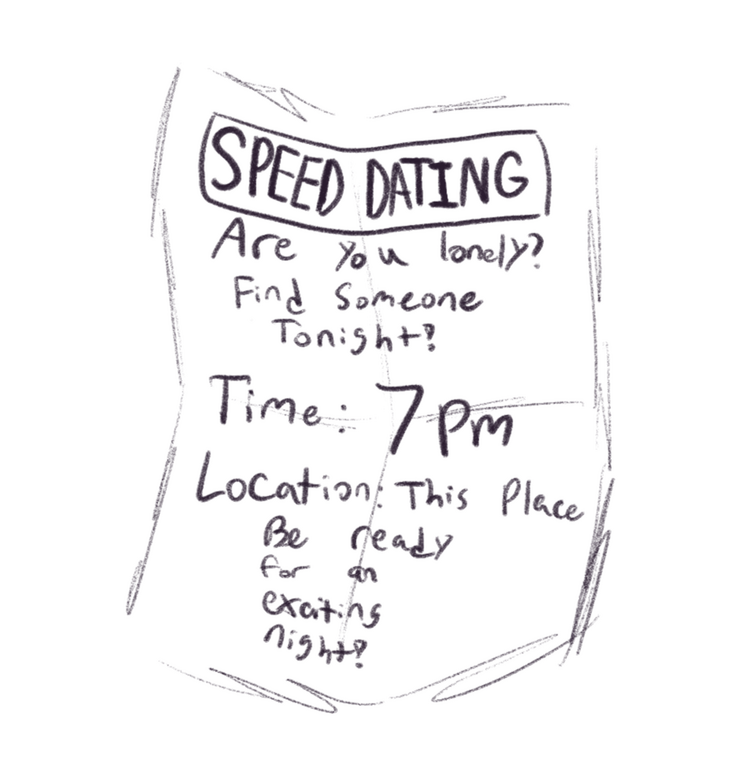 SPEED DATING
Are you lonely?
Find Someone
Tonight?
Time: 7 pm
Location: This Place
Be ready
for an
exciting
night?